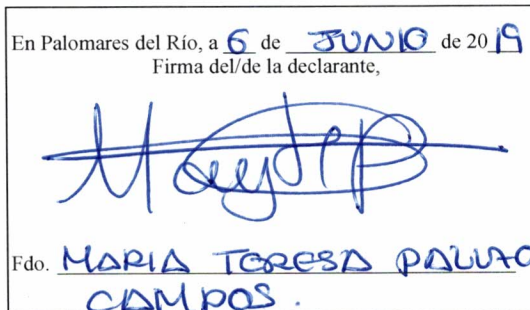 En Palomares del Río, a 6 de JUNIO de 2019
Firma del/de la declarante,
Fdo. MARIA TERESA
CAMPOS.